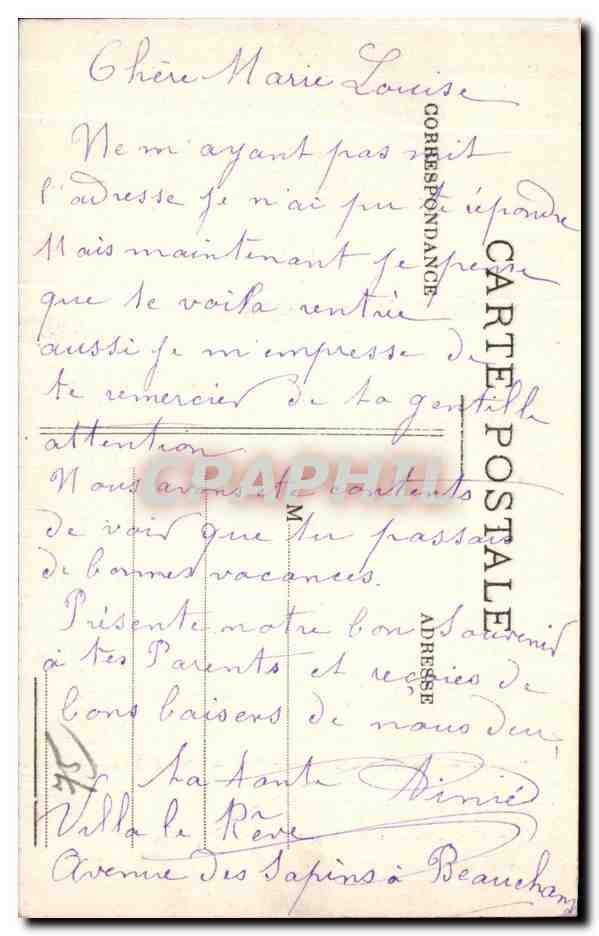 Chère Marie Louise
Ne m'ayant pas mit
l'adresse je n'ai pu te répondre
Mais maintenant je pense
que te voila rentrée
aussi je m'empresse de
te remercier de ta gentille
attention
Nous avons été contents
de voir que tu passais
de bonnes vacances.
Présente notre bon Souvenir
à tes Parents et reçoies de
bons baisers de nous deux
ta tante
Villa le Rêve
Avenue des Sapins à Beauchamp
CARTE POSTALE
CORRESPONDANCE
ADRESSE
M
CPAPHIL